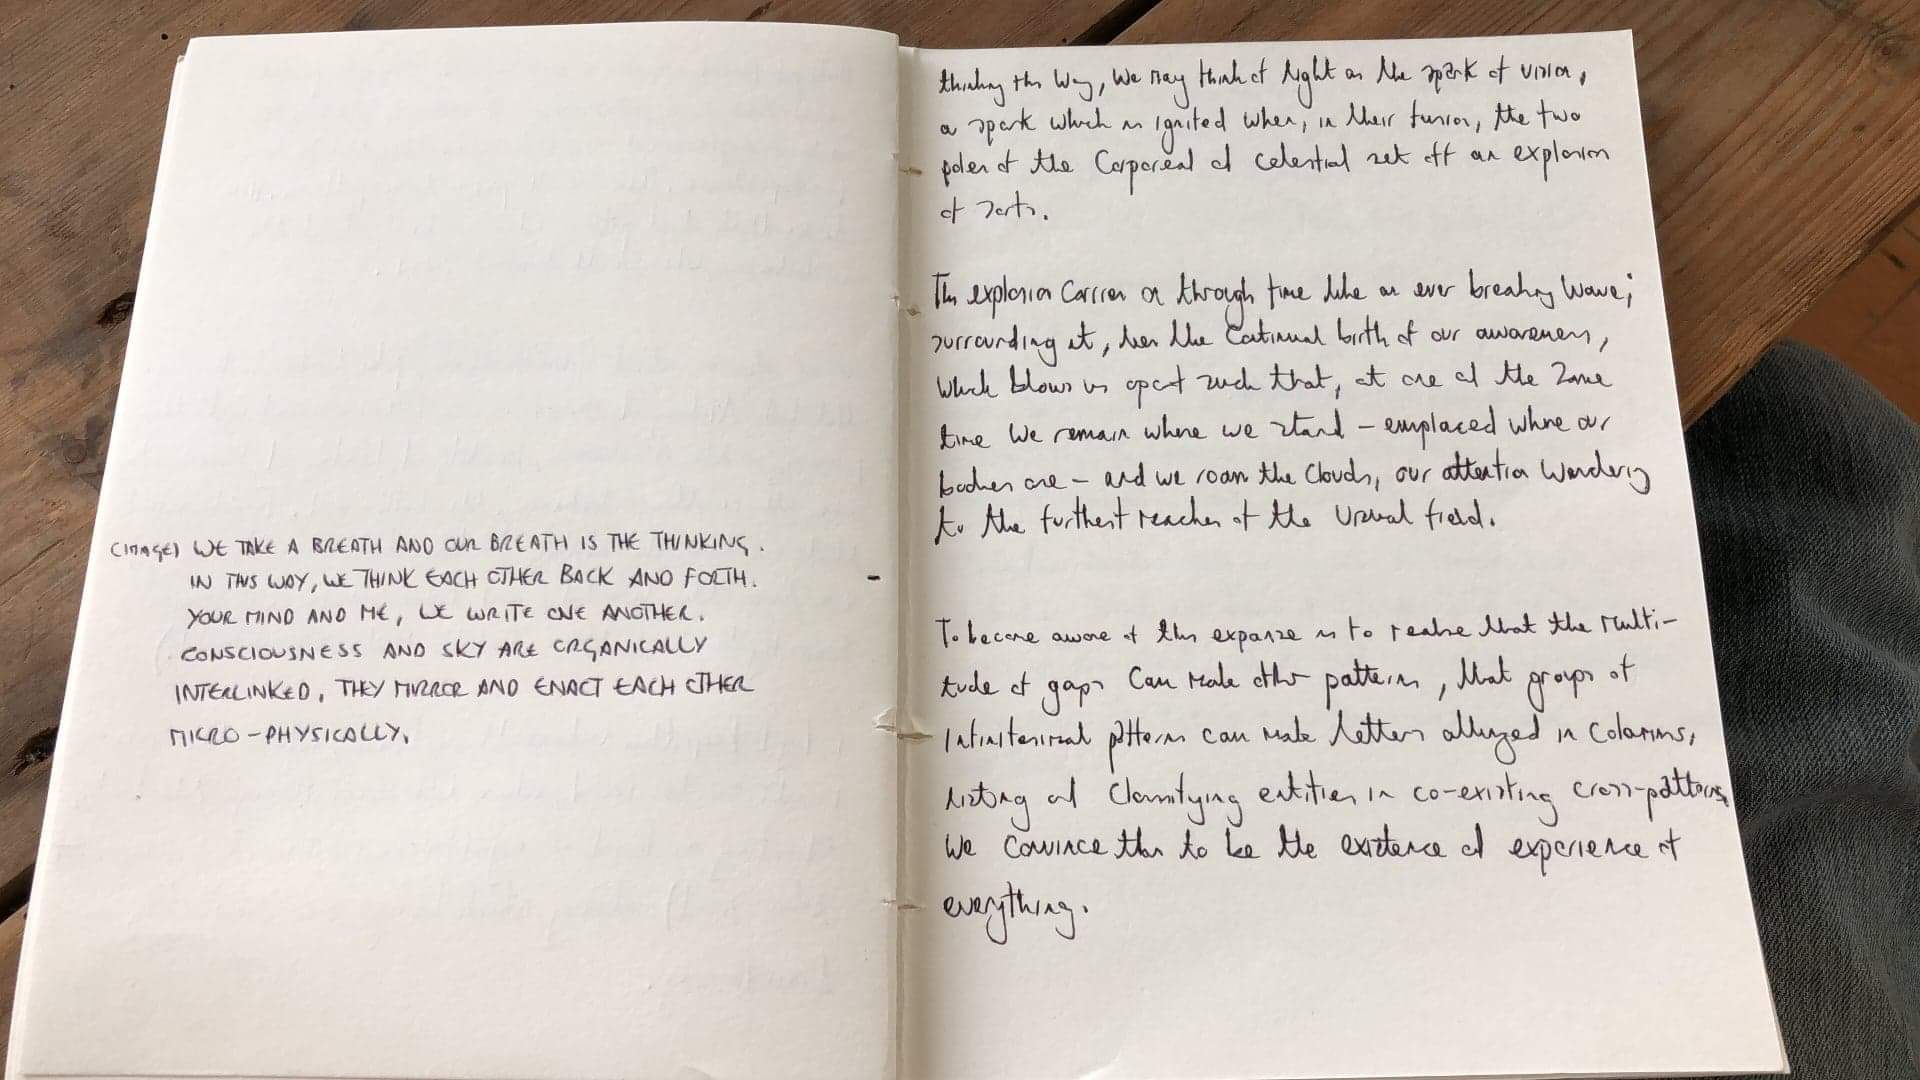 (IMAGE) WE TAKE A BREATH AND OUR BREATH IS THE THINKING.
IN THIS WAY, WE THINK EACH OTHER BACK AND FORTH.
YOUR MIND AND ME, WE WRITE ONE ANOTHER.
CONSCIOUSNESS AND SKY ARE ORGANICALLY
INTERLINKED, THEY MIRROR AND ENACT EACH OTHER
MICRO-PHYSICALLY.
thinking this way, we may think of light as the spark of vision,
a spark which is ignited when, in their fusion, the two
poles of the corporeal and celestial set off an explosion
of sorts.
This explosion carries on through time like an ever breaking wave;
surrounding it, lies the continual birth of our awareness,
which blows us apart such that, at one and the same
time we remain where we stand - emplaced where our
bodies are - and we roam the clouds, our attention wandering
to the furthest reaches of the visual field.
To become aware of this expanse is to realise that the multi-
tude of gaps can make other patterns, that groups of
infinitesimal patterns can make letters in columns,
listing and classifying entities in co-existing cross-patterns.
We convince to be the existence and experience of
everything.